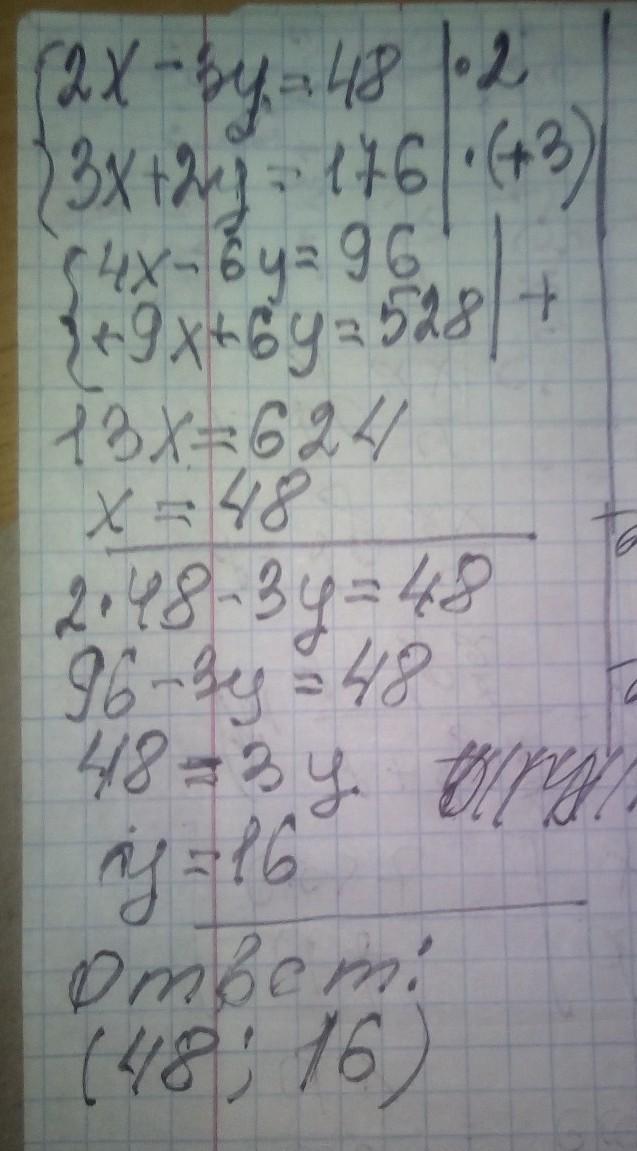 2x - 3y = 48 | · 2
3x + 2y = 176 | · (+3)
4x - 6y = 96
+9x + 6y = 528 | +
13x = 624
x = 48
2 · 48 - 3y = 48
96 - 3y = 48
48 = 3y
y = 16
Ответ:
(48; 16)